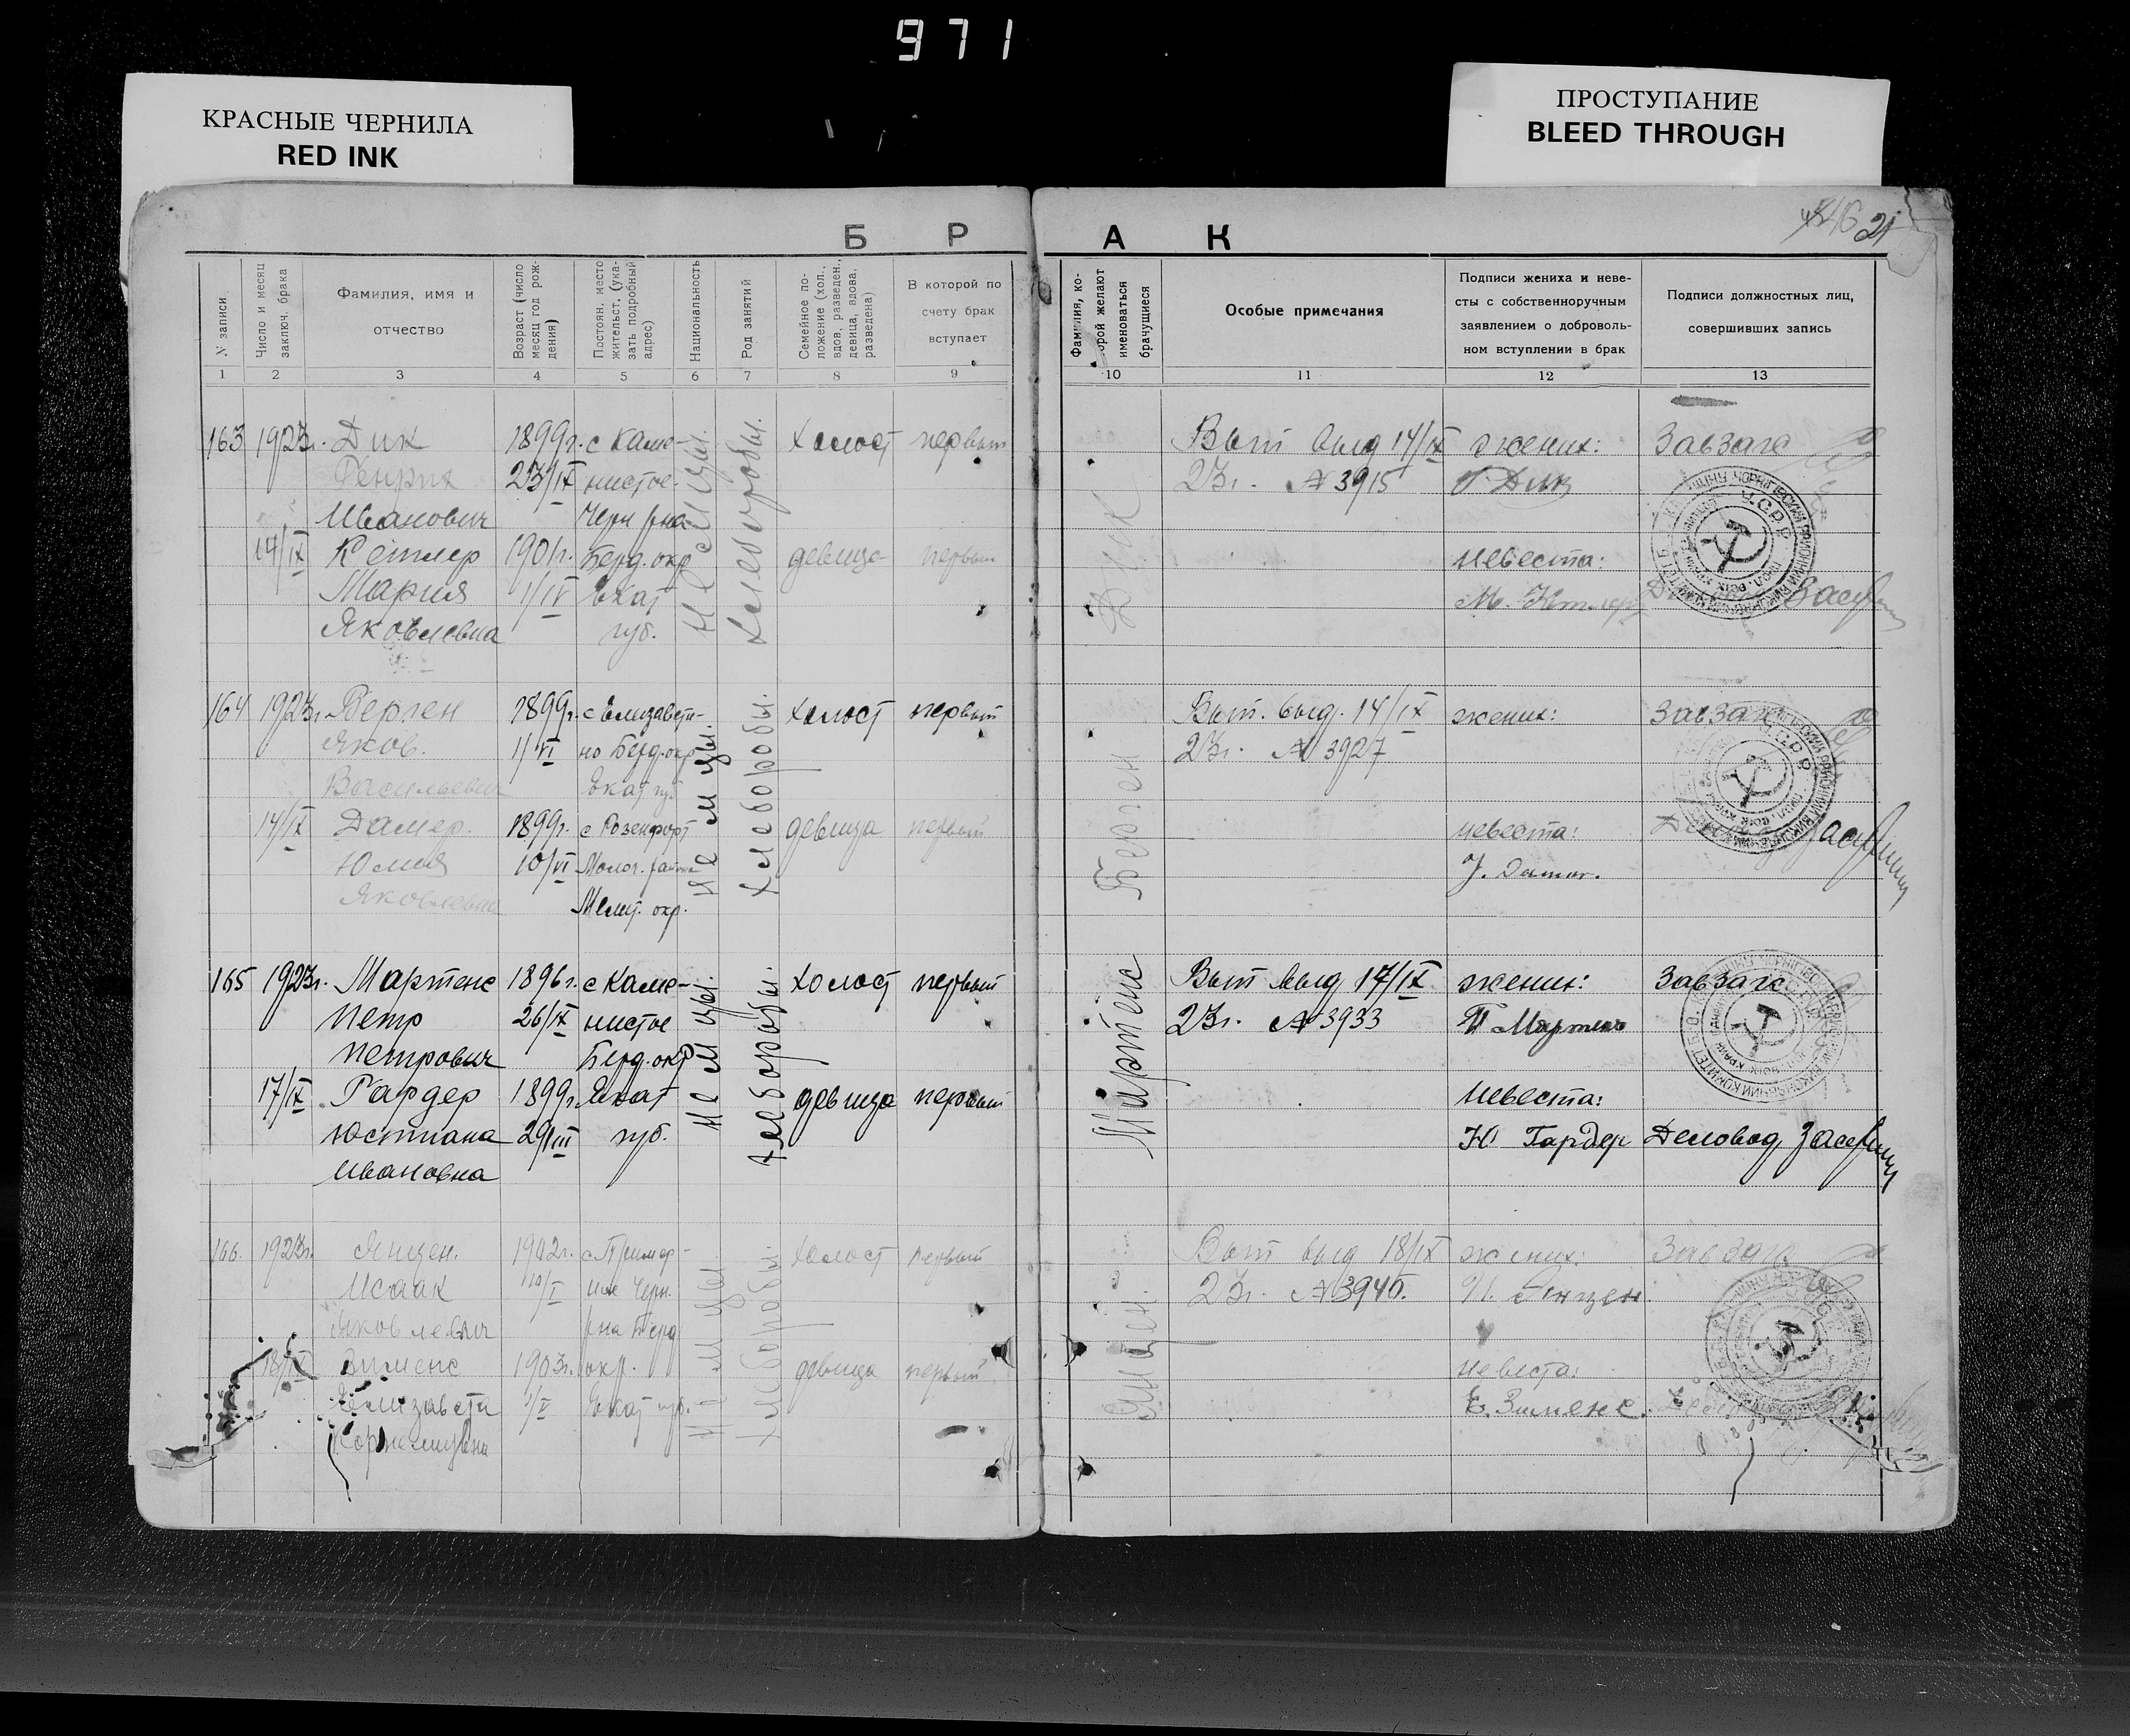 971
КРАСНЫЕ ЧЕРНИЛА
RED INK
ПРОСТУПАНИЕ
BLEED THROUGH
21
Б Р А К
N записи
Число и месяц заключ. брака
Фамилия, имя и отчество
Возраст (число месяц год рождения)
Постоян. место жительст. (указать подробный адрес)
Национальность
Род занятий
Семейное положение (хол., вдов, разведен., девица, вдова, разведена)
В которой по счету брак вступает
Фамилия, которой желают именоваться брачущиеся
Особые примечания
Подписи жениха и невесты с собственноручным заявлением о добровольном вступлении в брак
Подписи должностных лиц, совершивших запись
1 2 3 4 5 6 7 8 9 10 11 12 13
163 1923г. Дик 1899г. с Каме- Немцы. Хлеборобы. холост первый Дик Вып выд 14/IX жених: Завзагс
Генрих 23/IX нистое- 23г. № 3915 Г. Дик
Иванович Черн рна
14/IX Кетлер 1901г. Берд. окр девица первый невеста:
Мария 1/IV Екат М. Кетлер
Яковлевна губ.
164 1923г. Берген 1899г. с Елизавети- Немцы. Хлеборобы. холост первый Берген Вып. выд. 14/IX жених: Завзагс
Яков. 1/VI но Берд. окр 23г. № 3927
Васильевич Екат губ
14/IX Дамер. 1899г. с Розенфорт девица первый невеста:
Юлия 10/VI Молоч. района J. Damer.
Яковлевна Мелит. окр.
165 1923г. Мартенс 1896г. с Каме- Немцы. Хлеборобы. холост первый Мартенс Вып выд 17/IX жених: Завзагс
Петр 26/IX нистое 23г. № 3933 П Мартенс
Петрович Берд. окр
17/IX Гардер 1899г. Екат девица первый невеста:
Юстиана 29/III губ. Ю Гардер Деловод
Ивановна
166. 1923г. Янцен. 1902г. с Примор- Немцы. Хлеборобы. холост первый Янцен. Вып выд 18/IX жених: Завзагс
Исаак 10/I ное Черн. 23г. № 3940. И. Янцен
Яковлевич рна Берд
18/IX Зименс 1903г. окр. девица первый невеста:
Елизавета 1/V Екат губ. Е. Зименс.
Корнелиувна